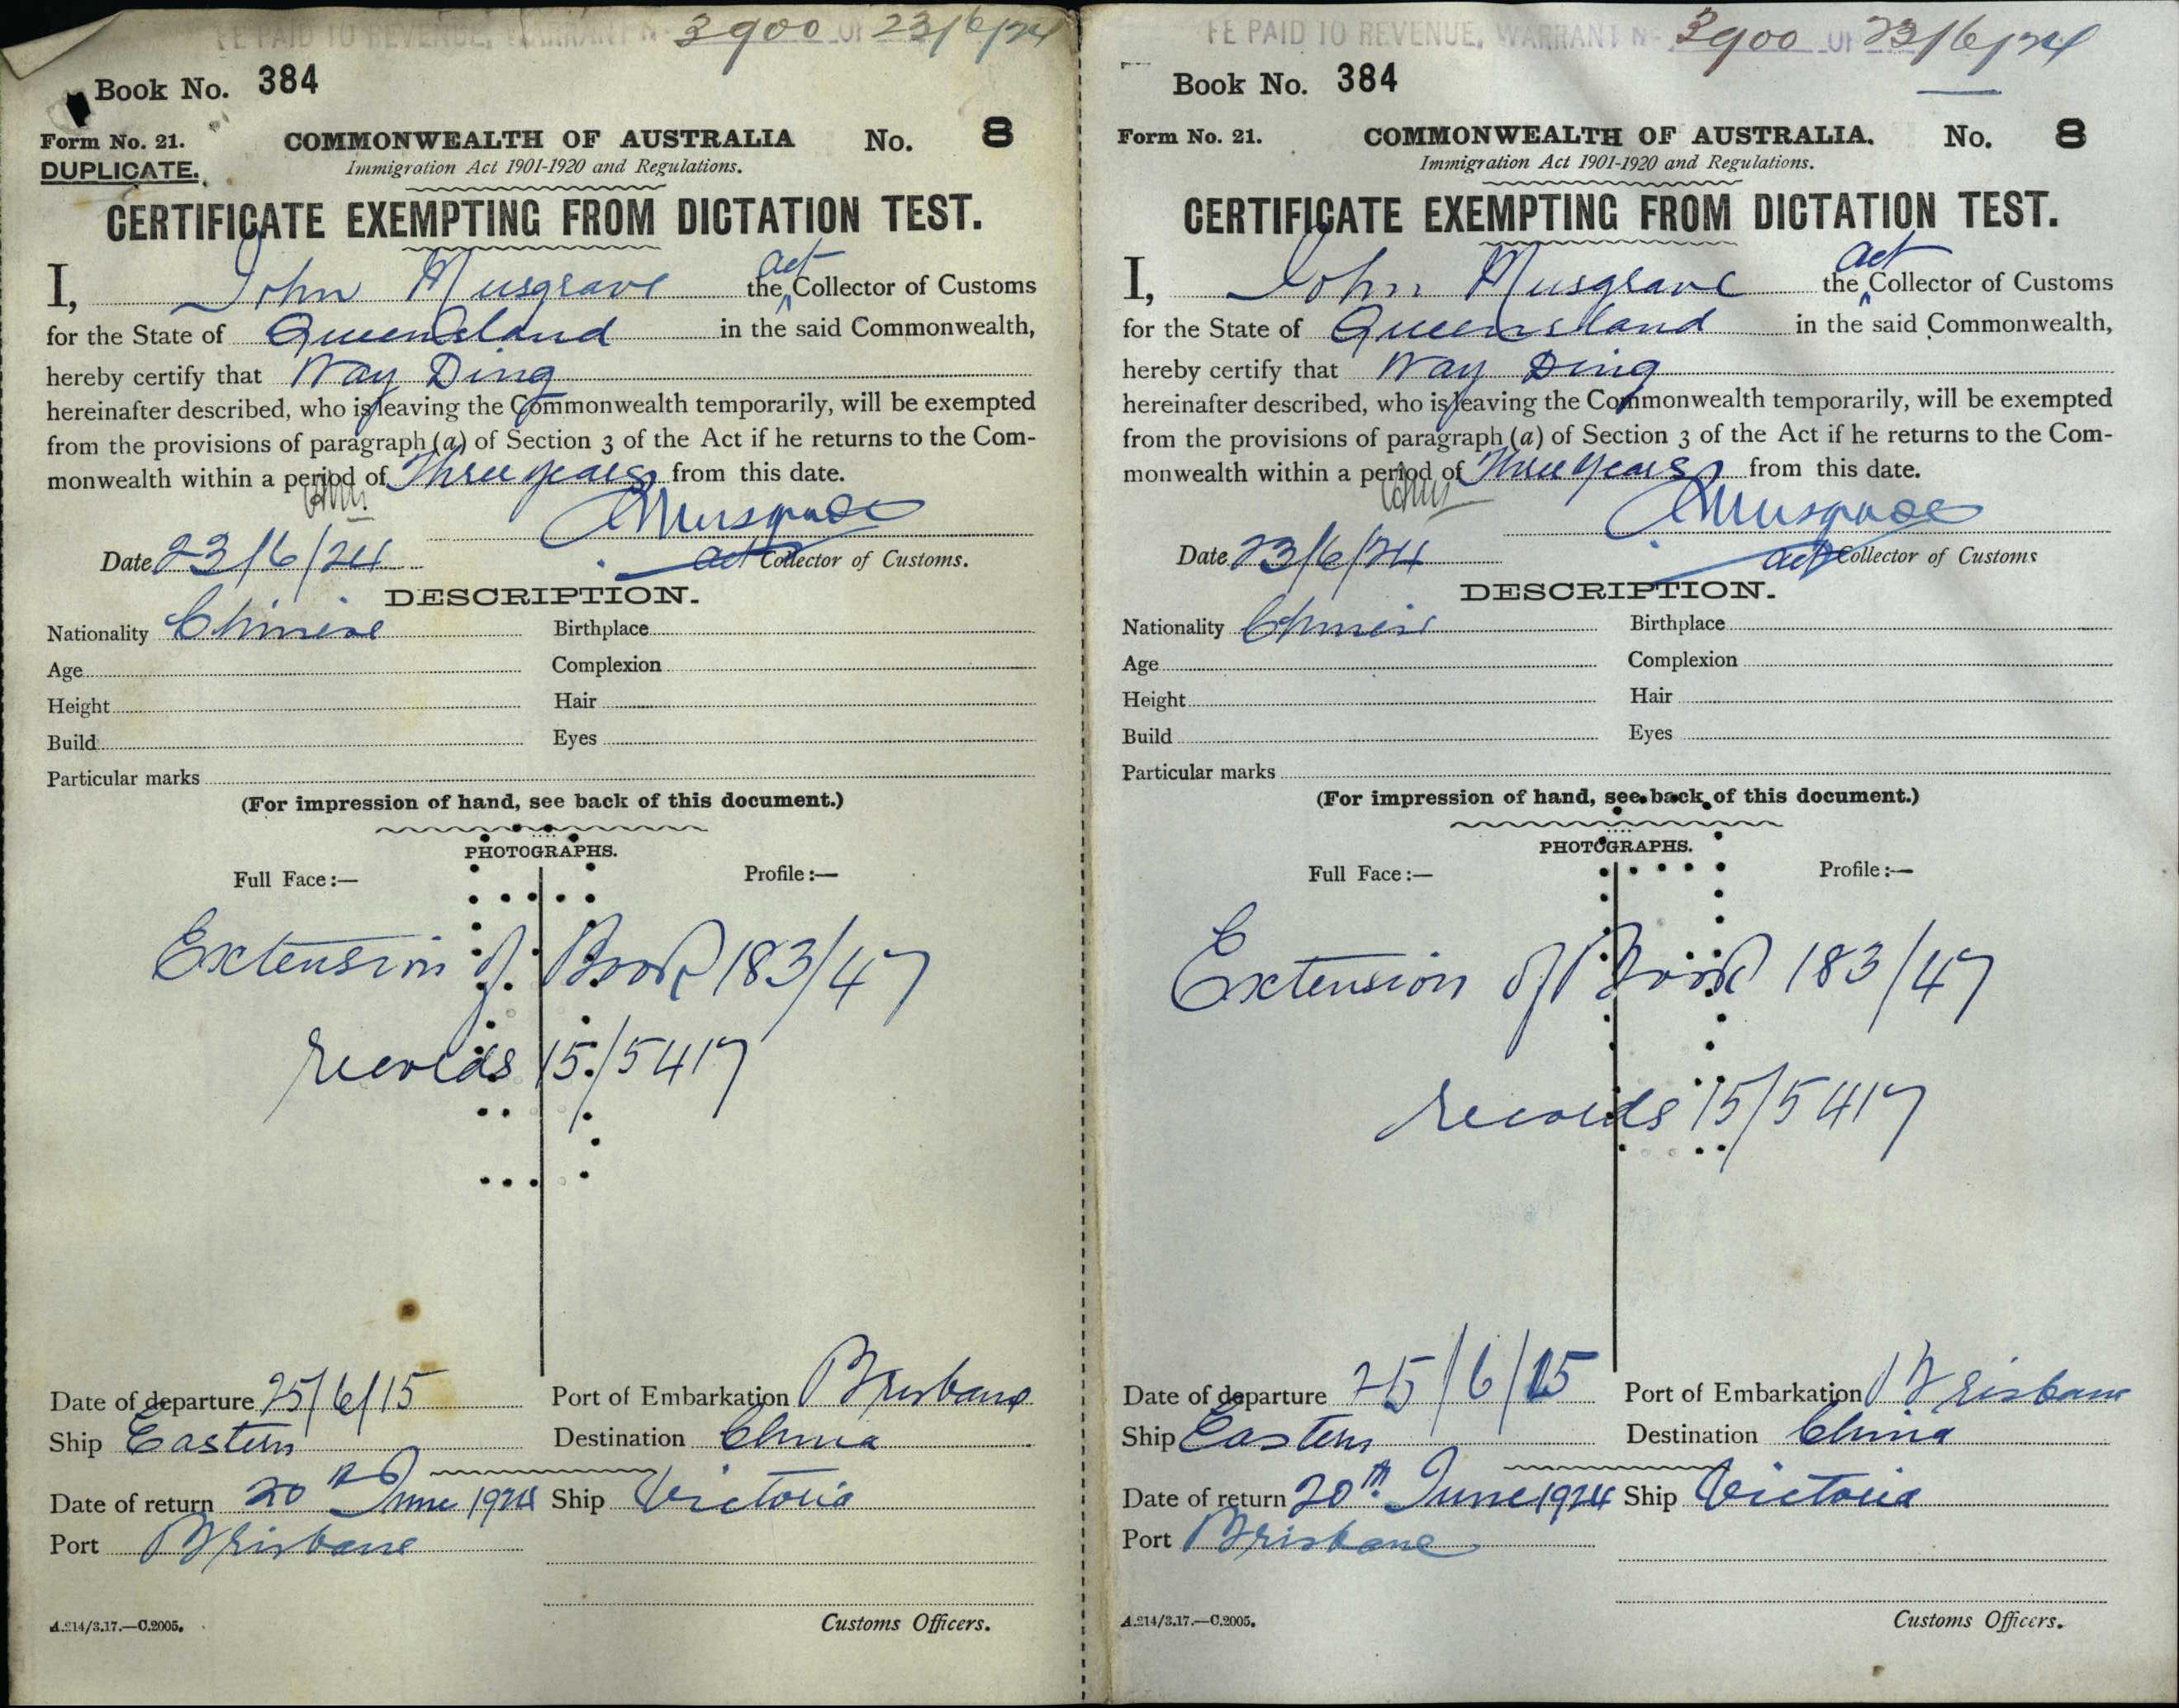 FE PAID TO REVENUE, WARRANT No 3900 OF 23/6/24
Book No. 384
Form No. 21.
COMMONWEALTH OF AUSTRALIA
No. 8
DUPLICATE.
Immigration Act 1901-1920 and Regulations.
CERTIFICATE EXEMPTING FROM DICTATION TEST.
I, John Musgrave the act Collector of Customs
for the State of Queensland in the said Commonwealth,
hereby certify that Way Ding
hereinafter described, who is leaving the Commonwealth temporarily, will be exempted
from the provisions of paragraph (a) of Section 3 of the Act if he returns to the Com-
monwealth within a period of Three years from this date.
JMusgrave
Date 23/6/24
act Collector of Customs.
DESCRIPTION.
Nationality Chinese Birthplace
Age Complexion
Height Hair
Build Eyes
Particular marks
(For impression of hand, see back of this document.)
PHOTOGRAPHS.
Full Face:— Profile:—
Extension of Book 183/47
records 15/5417
Date of departure 25/6/15 Port of Embarkation Brisbane
Ship Eastern Destination China
Date of return 20th June 1924 Ship Victoria
Port Brisbane
A.214/3.17.—C.2005.
Customs Officers.
FE PAID TO REVENUE, WARRANT No 3900 OF 23/6/24
Book No. 384
Form No. 21.
COMMONWEALTH OF AUSTRALIA.
No. 8
Immigration Act 1901-1920 and Regulations.
CERTIFICATE EXEMPTING FROM DICTATION TEST.
I, John Musgrave the act Collector of Customs
for the State of Queensland in the said Commonwealth,
hereby certify that Way Ding
hereinafter described, who is leaving the Commonwealth temporarily, will be exempted
from the provisions of paragraph (a) of Section 3 of the Act if he returns to the Com-
monwealth within a period of Three years from this date.
JMusgrave
Date 23/6/24
act Collector of Customs
DESCRIPTION.
Nationality Chinese Birthplace
Age Complexion
Height Hair
Build Eyes
Particular marks
(For impression of hand, see back of this document.)
PHOTOGRAPHS.
Full Face:— Profile:—
Extension of Book 183/47
records 15/5417
Date of departure 25/6/15 Port of Embarkation Brisbane
Ship Eastern Destination China
Date of return 20th June 1924 Ship Victoria
Port Brisbane
A.214/3.17.—C.2005.
Customs Officers.